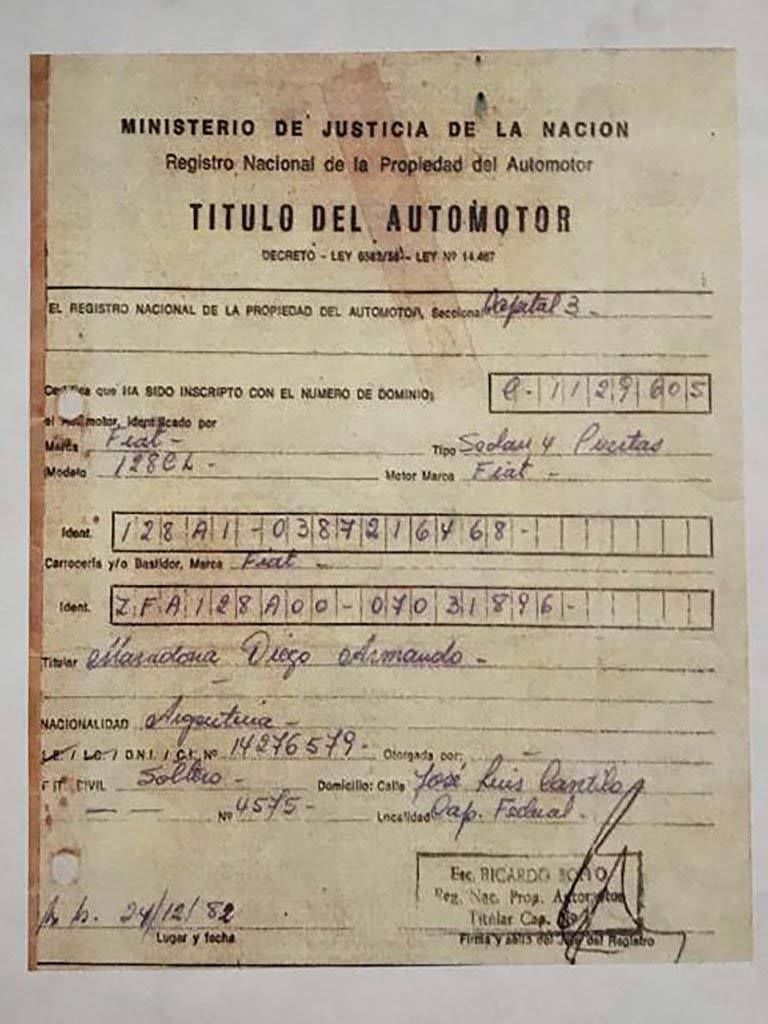 MINISTERIO DE JUSTICIA DE LA NACION
Registro Nacional de la Propiedad del Automotor
TITULO DEL AUTOMOTOR
DECRETO - LEY 6582/58 - LEY Nº 14.467
EL REGISTRO NACIONAL DE LA PROPIEDAD DEL AUTOMOTOR, Seccional Capital 3 -
Certifica que HA SIDO INSCRIPTO CON EL NUMERO DE DOMINIO: C-1129605
el Automotor, identificado por
Marca Fiat - Tipo Sedan 4 Puertas
Modelo 128CL - Motor Marca Fiat -
Ident. 128A1-0387216468-
Carrocería y/o Bastidor, Marca Fiat -
Ident. ZFA128A00-07031896-
Titular Maradona Diego Armando -
NACIONALIDAD Argentina -
L.E. / L.C. / D.N.I. / C.I. Nº 14276579 - Otorgada por: -
EST. CIVIL Soltero - Domicilio: Calle José Luis Cantilo
Nº 4575 - Localidad Cap. Federal -
Esc. RICARDO
Reg. Nac. Prop. Automotor
Titular Cap. Nº
24/12/82
Lugar y fecha Firma y sello del Jefe del Registro